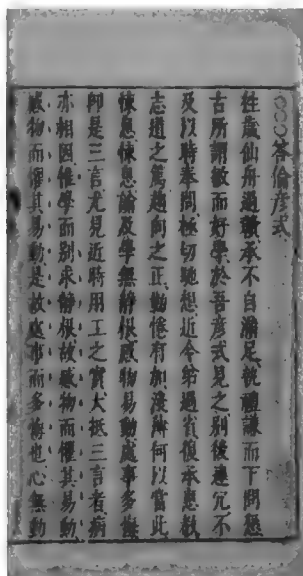 ○○○答倫彦式
往歲仙舟過贛承不自滿足執禮謙而下問懇
古所謂敏而好學於吾彦式見之别後連冗不
及以時奉問極切馳想近令弟過省復承惠教
志道之篤趨向之正勤惓有加淺薄何以當此
悚息悚息諭及學無靜根感物易動處事多悔
即是三言尤見近時用工之實大抵三言者病
亦相因惟學而别求靜根故感物而懼其易動
感物而懼其易動是故處事而多悔也心無動